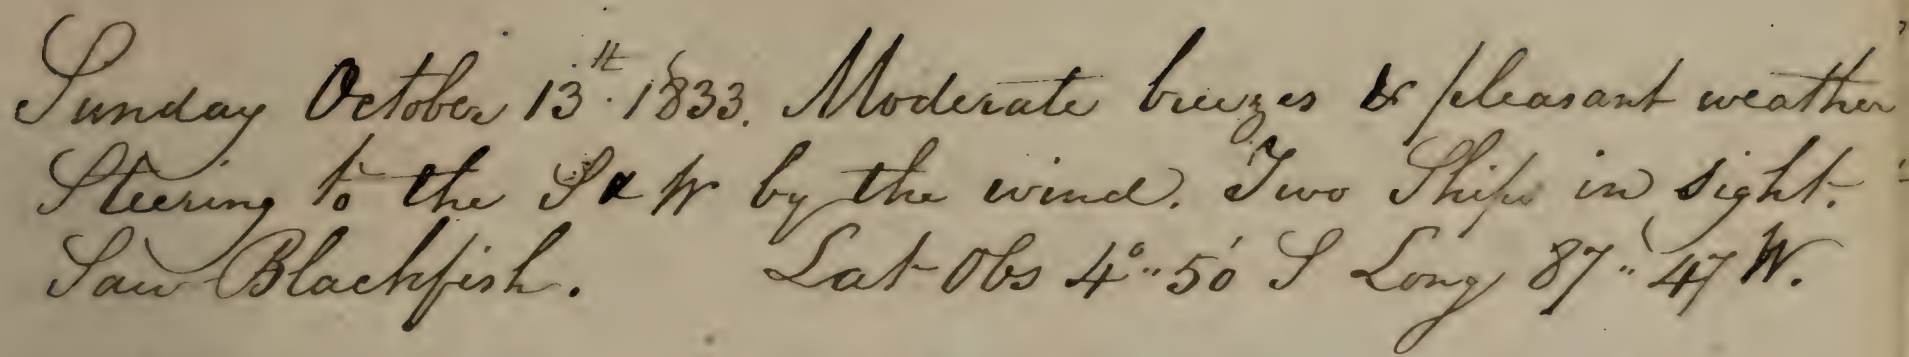 Sunday October 13th. 1833. Moderate breezes & pleasant weather
Steering to the S & W by the wind. Two Ships in sight.
Saw Blackfish. Lat Obs 4°..50' S Long 87..47 W.